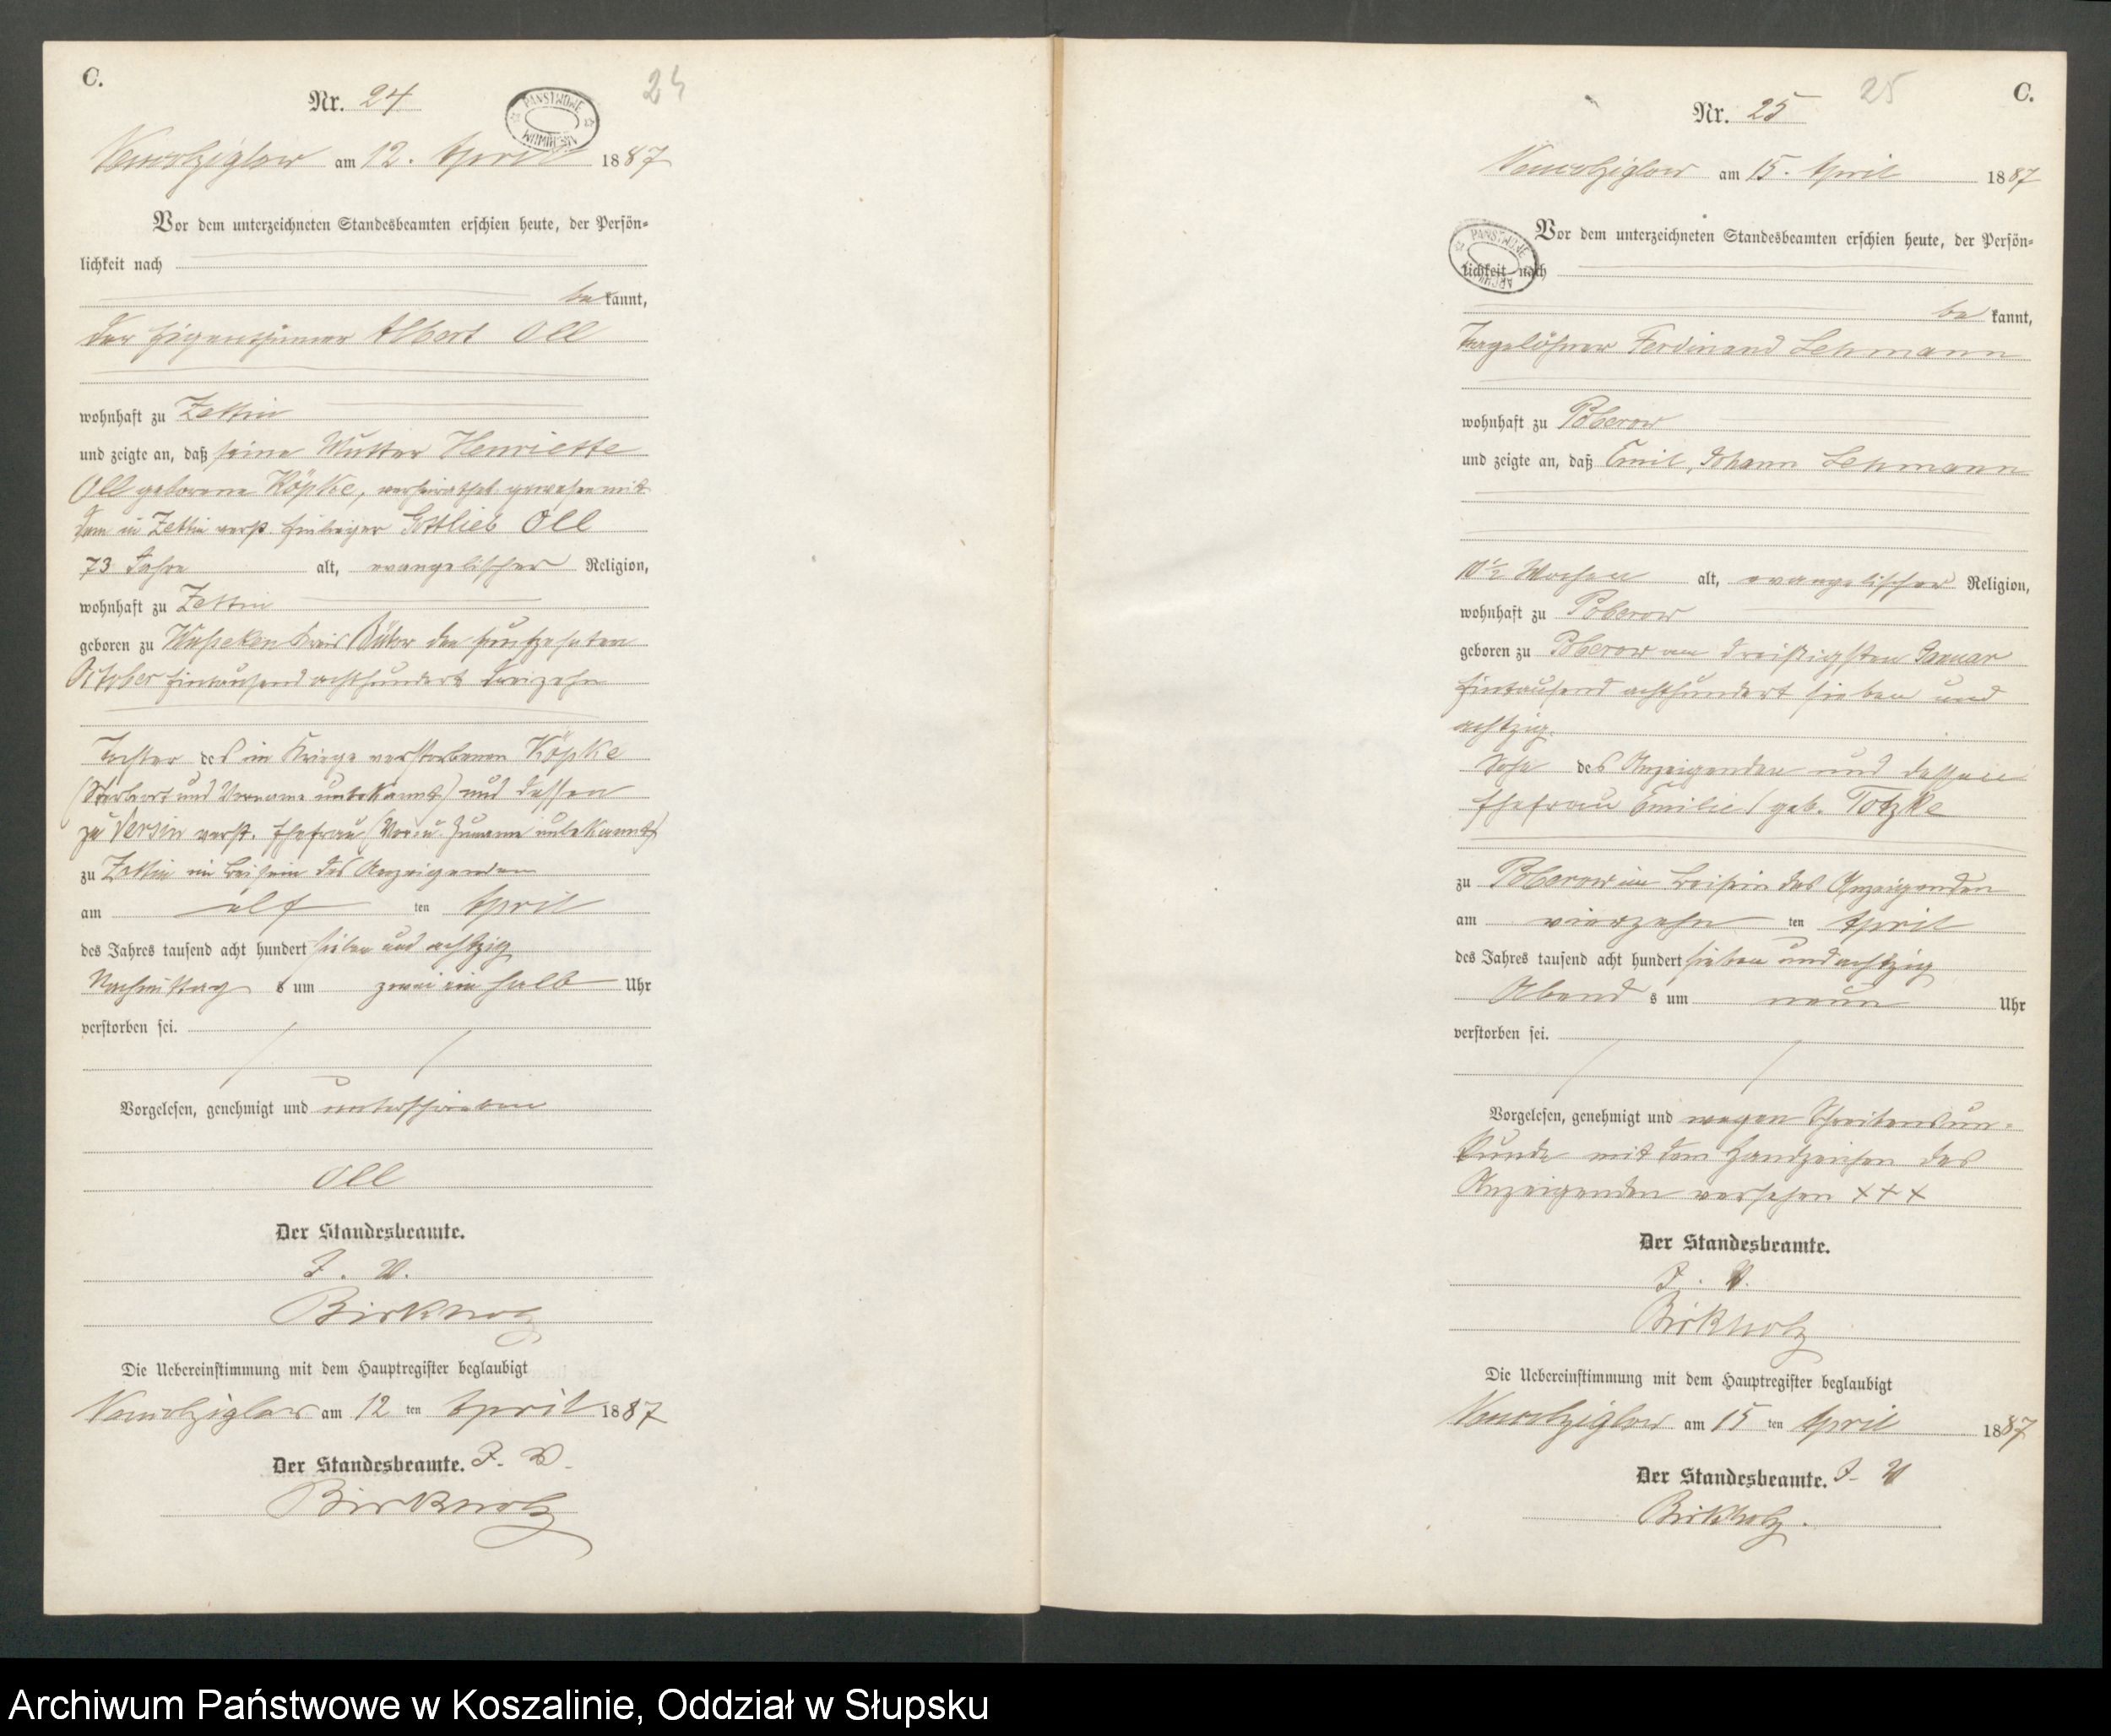 C.
Nr. 24
24
PAŃSTWOWE ARCHIWUM
am 12. April 1887
Vor dem unterzeichneten Standesbeamten erschien heute, der Persön-
lichkeit nach
bekannt,
der Eigenthümer Albert Oll
wohnhaft zu Zettin
und zeigte an, daß seine Mutter Henriette
Oll geborene Köpke, verheirathet gewesen mit
dem in Zettin verst. Gottlieb Oll
73 Jahre alt, evangelischer Religion,
wohnhaft zu Zettin
geboren zu Kreis Bütow den fünfzehnten
October Eintausend achthundert dreizehn
Tochter des im Kriege verstorbenen Köpke
(Sterbeort und Vorname unbekannt) und dessen
zu Versin verst. Ehefrau (Vor u. Zuname unbekannt)
zu Zettin im Beisein des Anzeigenden
am elf ten April
des Jahres tausend acht hundert sieben und achtzig
Nachmittag s um zwei ein halb Uhr
verstorben sei.
Vorgelesen, genehmigt und unterschrieben
Oll
Der Standesbeamte.
J. V.
Birkholz
Die Uebereinstimmung mit dem Hauptregister beglaubigt
am 12 ten April 1887
Der Standesbeamte. J. V.
Birkholz
C.
Nr. 25
25
am 15. April 1887
PAŃSTWOWE ARCHIWUM
Vor dem unterzeichneten Standesbeamten erschien heute, der Persön-
lichkeit nach
bekannt,
Tagelöhner Ferdinand Lehmann
wohnhaft zu Poberow
und zeigte an, daß Emil, Johann Lehmann
10 1/2 Wochen alt, evangelischer Religion,
wohnhaft zu Poberow
geboren zu Poberow am dreißigsten Januar
Eintausend achthundert sieben und
achtzig.
Sohn des Anzeigenden und dessen
Ehefrau Emilie geb. Totzke
zu Poberow im Beisein des Anzeigenden
am vierzehn ten April
des Jahres tausend acht hundert sieben und achtzig
Abend s um neun Uhr
verstorben sei.
Vorgelesen, genehmigt und wegen Schreibensun-
kunde mit dem Handzeichen des
Anzeigenden versehen + + +
Der Standesbeamte.
J. V.
Birkholz
Die Uebereinstimmung mit dem Hauptregister beglaubigt
am 15 ten April 1887
Der Standesbeamte. J. V
Birkholz.
Archiwum Państwowe w Koszalinie, Oddział w Słupsku